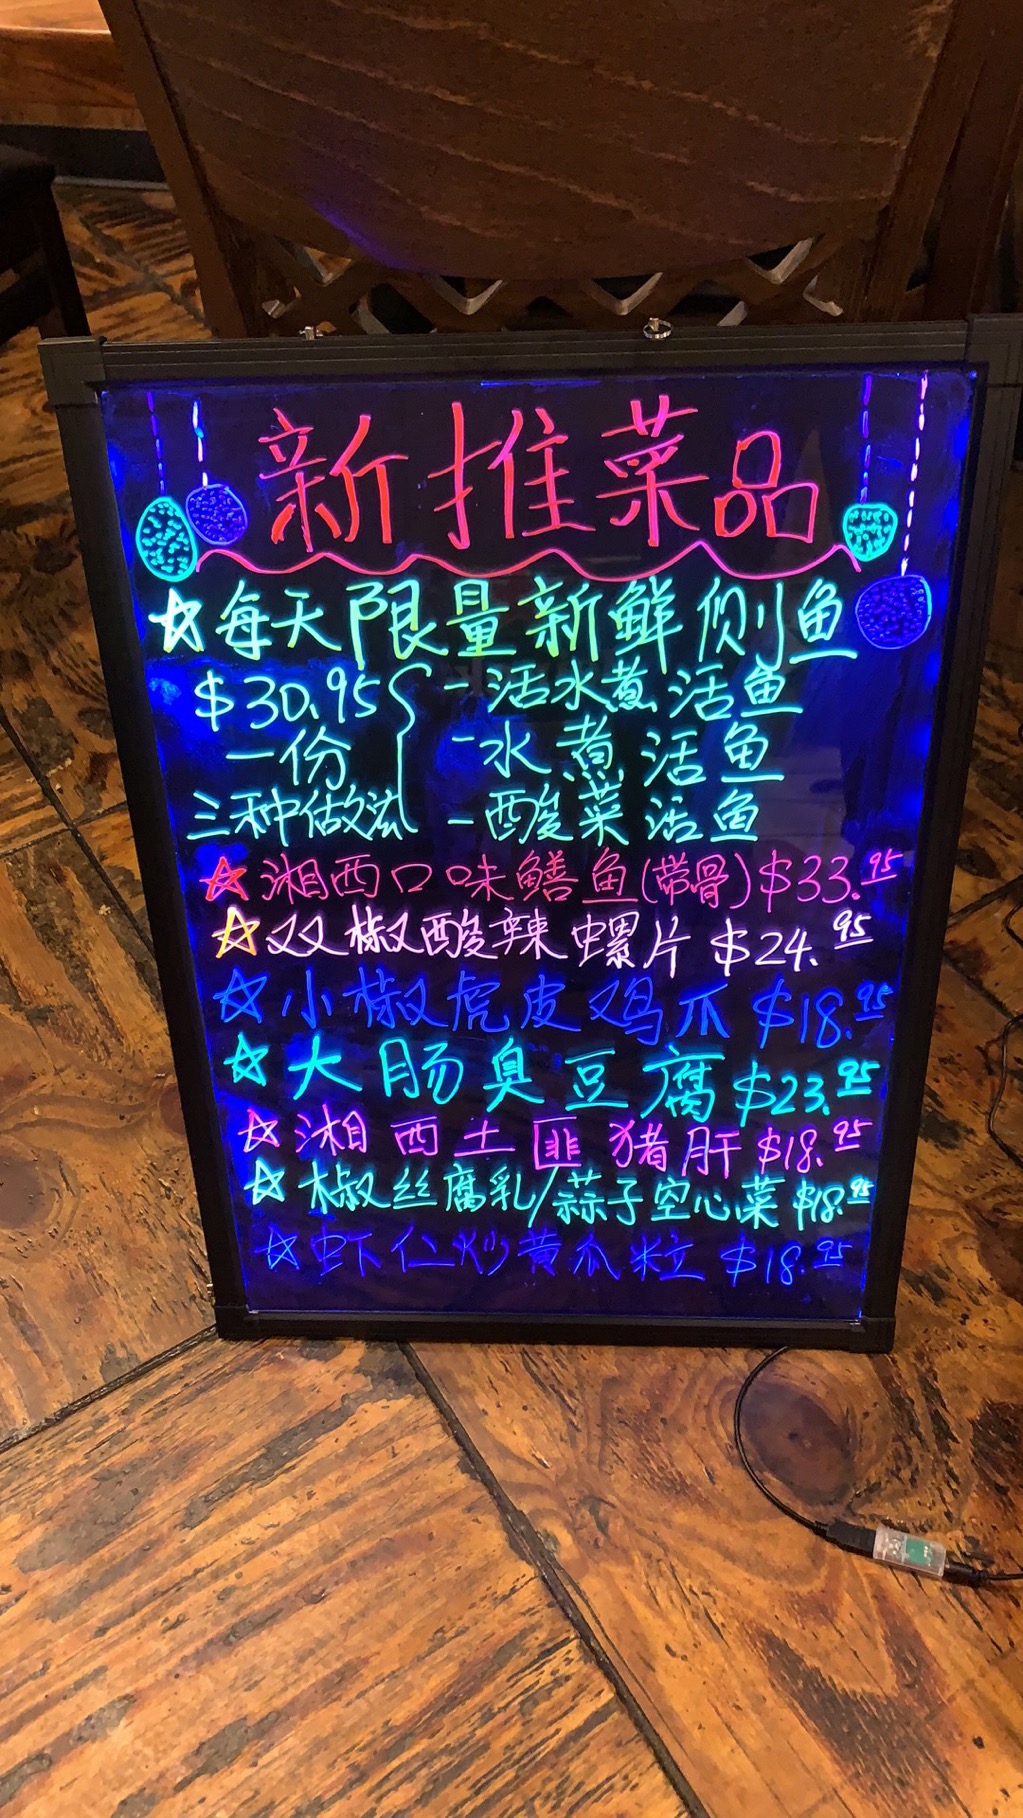 新推菜品
☆每天限量新鲜侧鱼
$30.95 -活水煮活鱼
一份 -水煮活鱼
三种做法 -酸菜活鱼
☆湘西口味鳝鱼(带骨)$33.95
☆双椒酸辣螺片 $24.95
☆小椒虎皮鸡爪 $18.95
☆大肠臭豆腐 $23.95
☆湘西土匪猪肝 $18.95
☆椒丝腐乳/蒜子空心菜 $18.95
☆虾仁炒黄瓜粒 $18.95